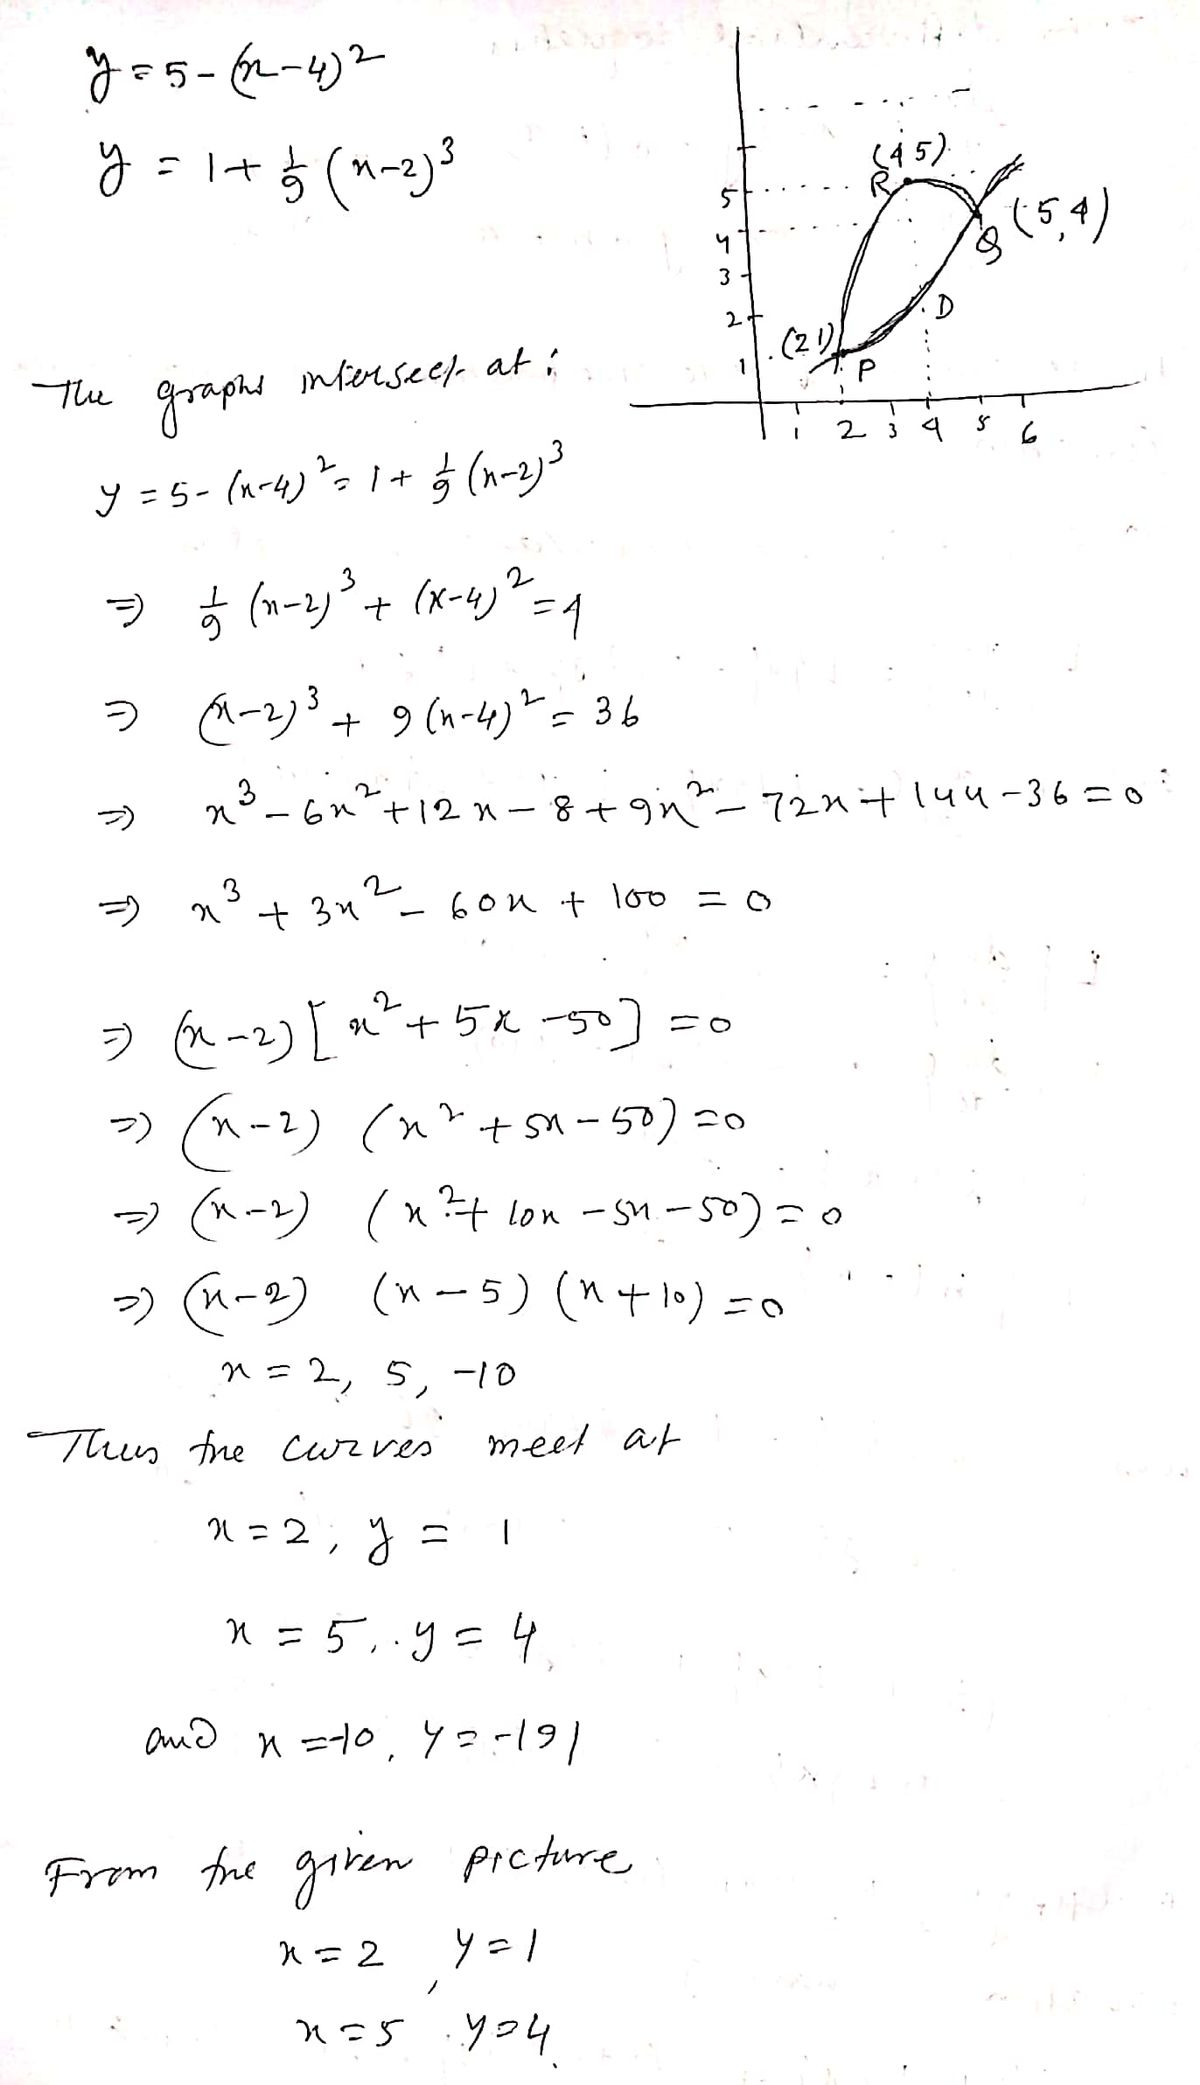 y = 5 - (x-4)²
y = 1 + 1/9 (x-2)³
(4 5)
R
5
(5,4)
4
Q
3
D
2
(2 1)
1
P
1 2 3 4 5 6
The graphs intersect at :
y = 5 - (x-4)² = 1 + 1/9 (x-2)³
⇒ 1/9 (x-2)³ + (x-4)² = 4
⇒ (x-2)³ + 9(x-4)² = 36
⇒ x³ - 6x² + 12x - 8 + 9x² - 72x + 144 - 36 = 0
⇒ x³ + 3x² - 60x + 100 = 0
⇒ (x-2) [x² + 5x - 50] = 0
⇒ (x-2) (x² + 5x - 50) = 0
⇒ (x-2) (x² + 10x - 5x - 50) = 0
⇒ (x-2) (x-5) (x+10) = 0
x = 2, 5, -10
Thus the curves meet at
x = 2, y = 1
x = 5, y = 4
and x = -10, y = -191
From the given picture
x = 2, y = 1
x = 5 y = 4